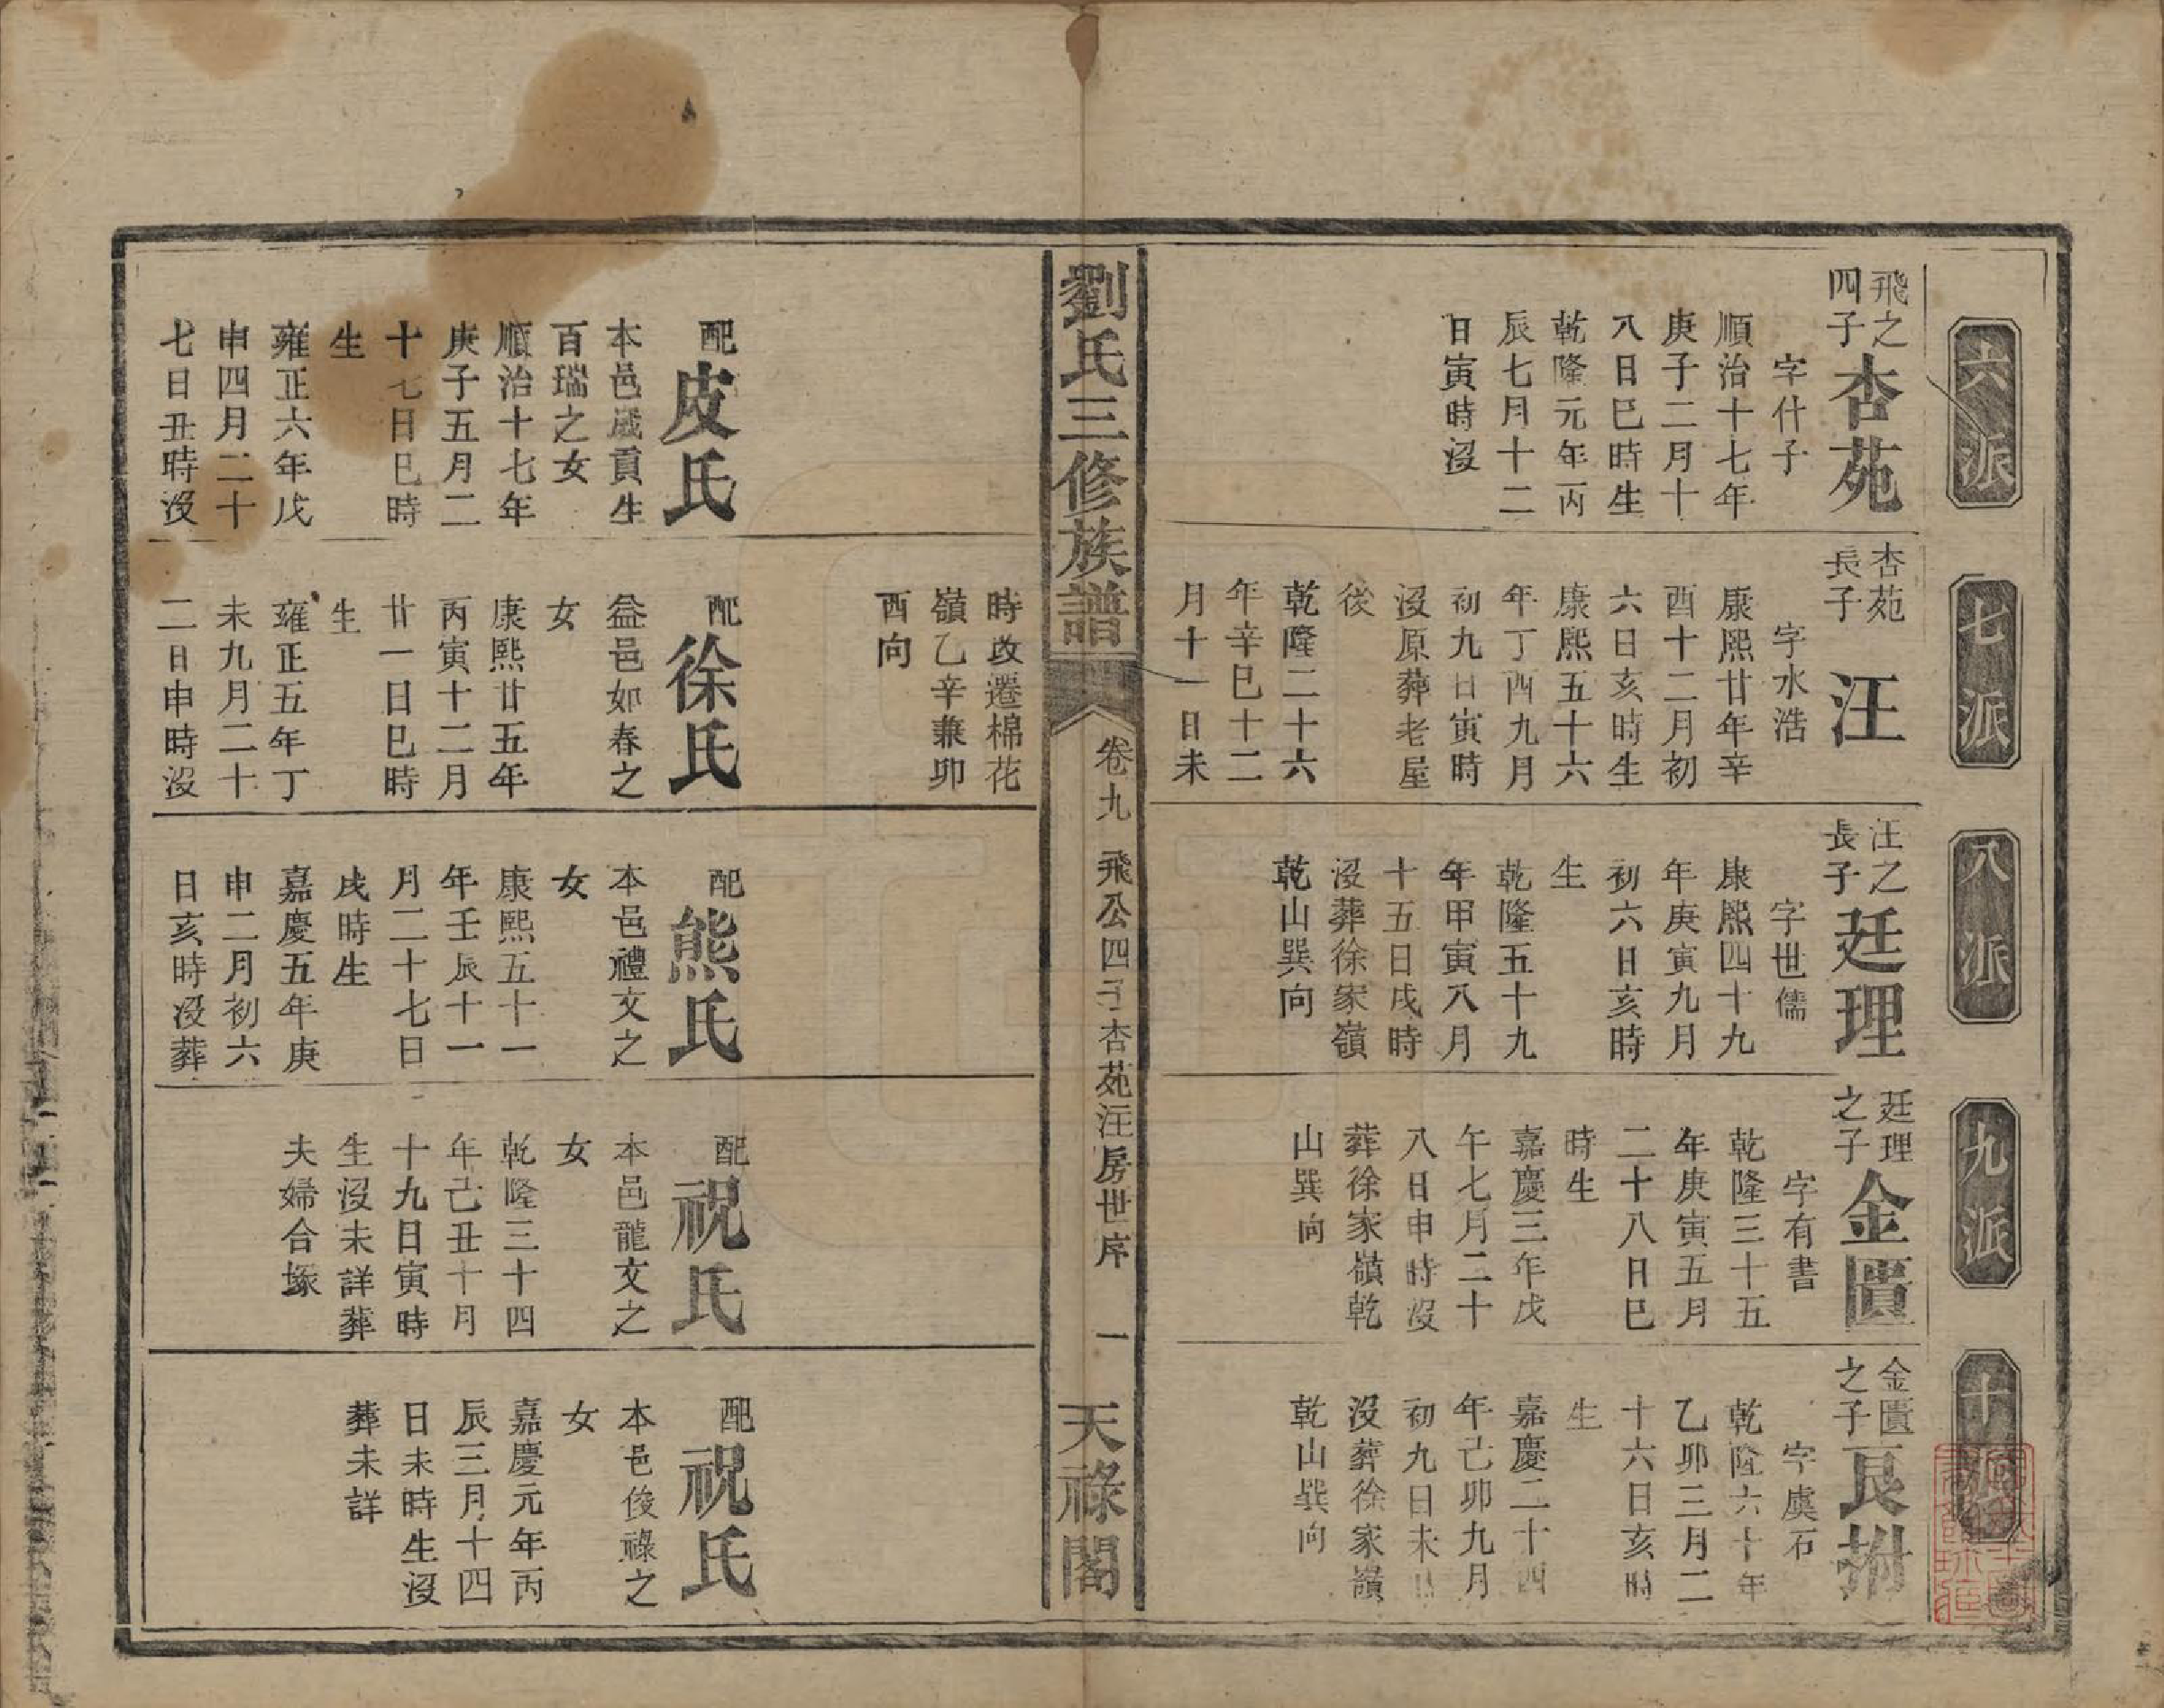 六派
飛之
四子
杏苑
字什子
順治十七年
庚子二月十
八日巳時生
乾隆元年丙
辰七月十二
日寅時沒
七派
杏苑
長子
汪
字水浩
康熙廿年辛
酉十二月初
六日亥時生
康熙五十六
年丁酉九月
初九日寅時
沒原葬老屋
後
乾隆二十六
年辛巳十二
月十一日未
時改遷棉花
嶺乙辛兼卯
酉向
八派
汪之
長子
廷理
字世儒
康熙四十九
年庚寅九月
初六日亥時
生
乾隆五十九
年甲寅八月
十五日戌時
沒葬徐家嶺
乾山巽向
九派
廷理
之子
金匱
字有書
乾隆三十五
年庚寅五月
二十八日巳
時生
嘉慶三年戊
午七月二十
八日申時沒
葬徐家嶺乾
山巽向
十派
金匱
之子
良拊
字虞石
乾隆六十年
乙卯三月二
十六日亥時
生
嘉慶二十四
年己卯九月
初九日未時
沒葬徐家嶺
乾山巽向
劉氏三修族譜
卷九
飛公四子杏苑汪房世序
一
天祿閣
配
皮氏
本邑歲貢生
百瑞之女
順治十七年
庚子五月二
十七日巳時
生
雍正六年戊
申四月二十
七日丑時沒
配
徐氏
益邑如春之
女
康熙廿五年
丙寅十二月
廿一日巳時
生
雍正五年丁
未九月二十
二日申時沒
配
熊氏
本邑禮文之
女
康熙五十一
年壬辰十一
月二十七日
戌時生
嘉慶五年庚
申二月初六
日亥時沒葬
配
祝氏
本邑龍文之
女
乾隆三十四
年己丑十月
十九日寅時
生沒未詳葬
夫婦合塚
配
祝氏
本邑俊祿之
女
嘉慶元年丙
辰三月十四
日未時生沒
葬未詳